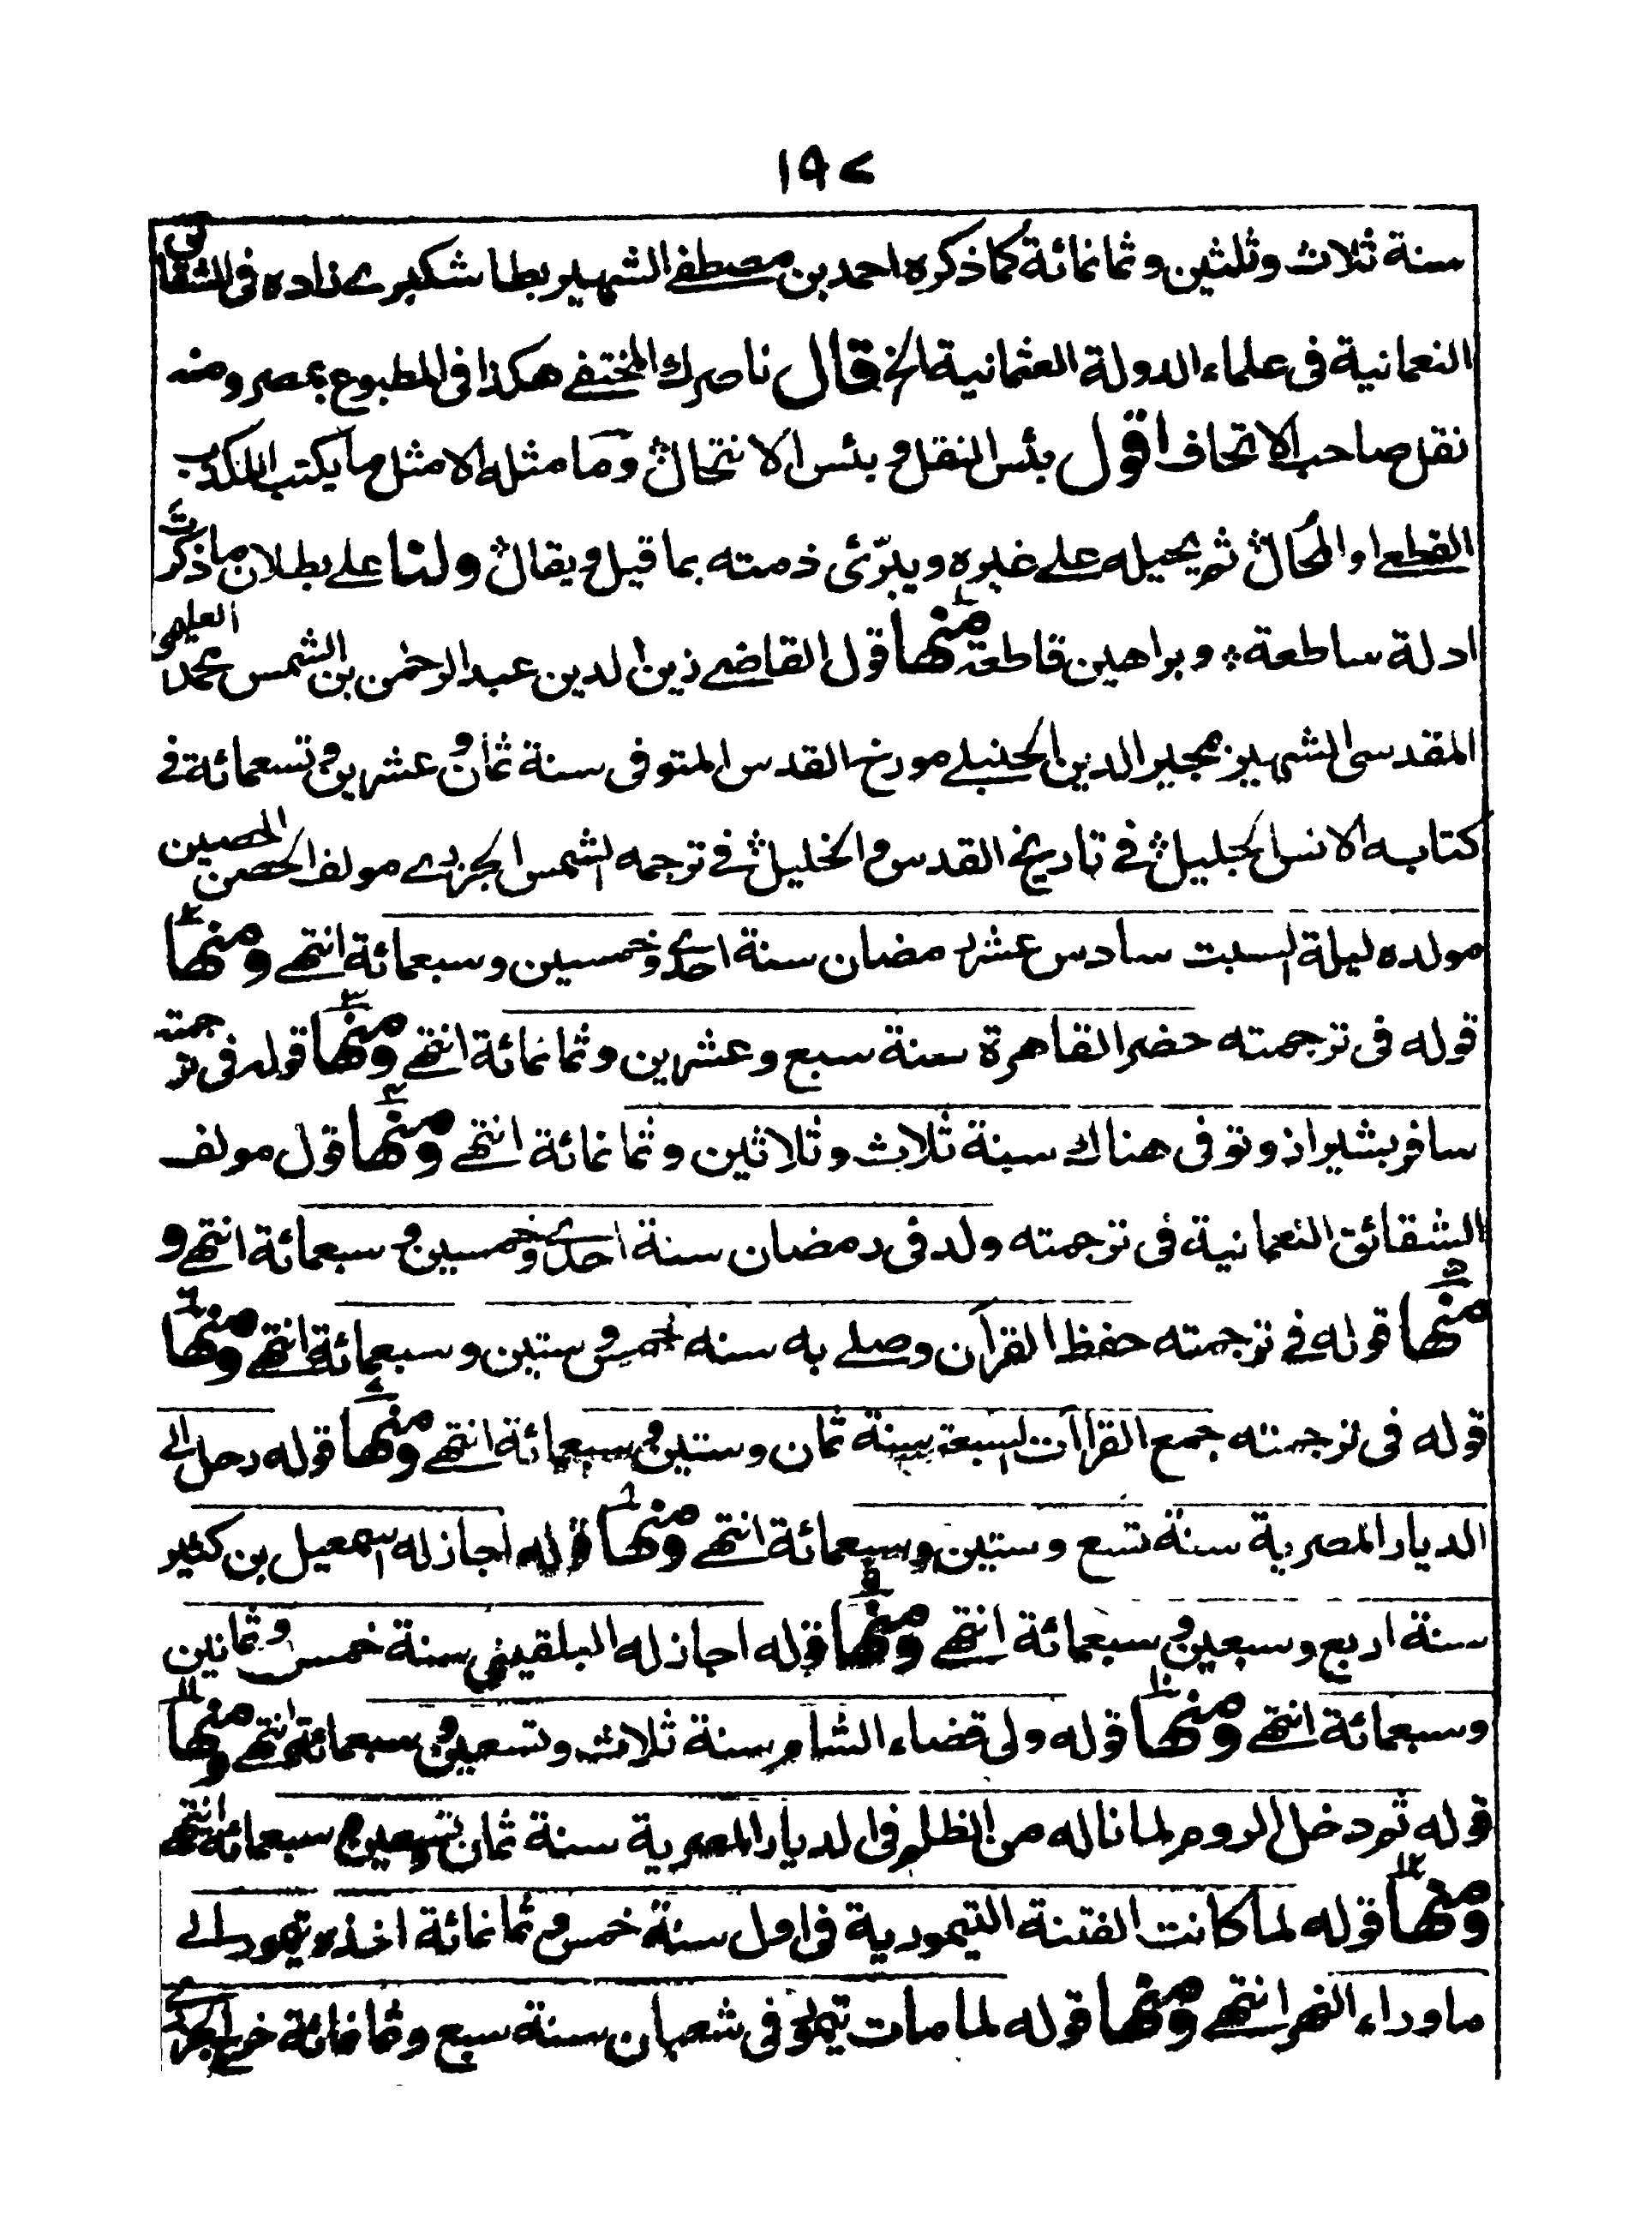 ١٩٧
سنة ثلاث وثلثين وثمانمائة كما ذكره احمد بن مصطفے الشهير بطاشكبرے زاده فى الشقائق
النعمانية فى علماء الدولة العثمانية الخ قال ناصرك المختفے هكذا فى المطبوع بمصر ومنه
نقل صاحب الاتحاف اقول بئس النقل وبئس الانتحال وما مثله الا مثل ما يكتب الكذب
القطعے او المحال ثم يحيله علے غيره ويبرّئ ذمته بما قيل ويقال ولنا علے بطلان ما ذكرت
ادلة ساطعة وبراهين قاطعة منها قول القاضے زين الدين عبد الرحمٰن بن الشمس محمد العليمى
المقدسى الشهير بمجير الدين الحنبلے مورخ القدس المتوفى سنة ثمان وعشرين وتسعمائة فے
كتابه الانس الجليل فے تاريخ القدس والخليل فے ترجمه الشمس الجزرے مولف الحصن الحصين
مولده ليلة السبت سادس عشر رمضان سنة احدے وخمسين وسبعمائة انتهے ومنها ٢
قوله فى ترجمته حضر القاهرة سنة سبع وعشرين وثمانمائة انتهے ومنها ٣ قوله فى ترجمته
سافر بشيراز وتوفى هناك سنة ثلاث وثلاثين وثمانمائة انتهے ومنها ٤ قول مولف
الشقائق النعمانية فى ترجمته ولد فى رمضان سنة احدے وخمسين وسبعمائة انتهے و
منها ٥ قوله فے ترجمته حفظ القرآن وصلے به سنه خمس وستين وسبعمائة انتهے ومنها ٦
قوله فى ترجمته جمع القراآت السبعة سنة ثمان وستين وسبعمائة انتهے ومنها ٧ قوله رحل الے
الديار المصرية سنة تسع وستين وسبعمائة انتهے ومنها ٨ قوله اجاز له اسمعيل بن كثير
سنة اربع وسبعين وسبعمائة انتهے ومنها ٩ قوله اجاز له البلقينى سنة خمس وثمانين
وسبعمائة انتهے ومنها ١٠ قوله ولى قضاء الشام سنة ثلاث وتسعين وسبعمائة انتهے ومنها ١١
قوله ثم دخل الروم لما ناله من الظلم فى الديار المصرية سنة ثمان وتسعين وسبعمائة انتهے
ومنها ١٢ قوله لما كانت الفتنة التيمورية فى اول سنة خمس وثمانمائة اخذه تيمور الے
ماوراء النهر انتهے ومنها قوله لما مات تيمور فى شعبان سنة سبع وثمانمائة خرج الجزرے